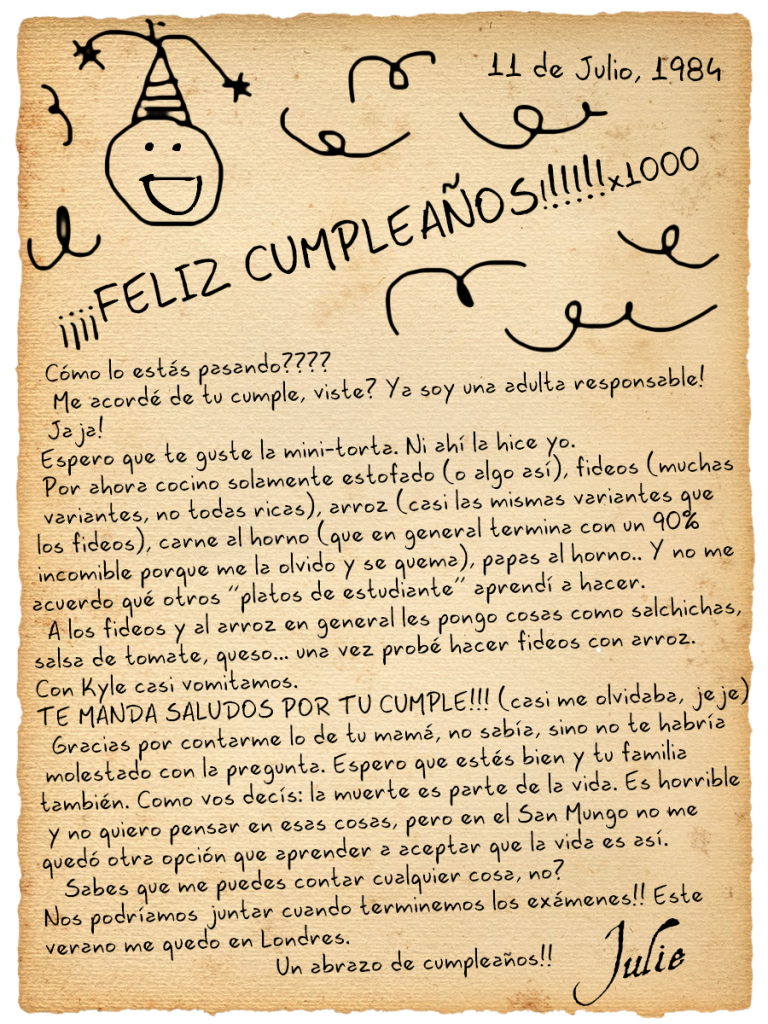 11 de Julio, 1984
¡¡¡¡FELIZ CUMPLEAÑOS!!!!!!x1000
Cómo lo estás pasando????
Me acordé de tu cumple, viste? Ya soy una adulta responsable!
Jaja!
Espero que te guste la mini-torta. Ni ahí la hice yo.
Por ahora cocino solamente estofado (o algo así), fideos (muchas
variantes, no todas ricas), arroz (casi las mismas variantes que
los fideos), carne al horno (que en general termina con un 90%
incomible porque me la olvido y se quema), papas al horno.. Y no me
acuerdo qué otros "platos de estudiante" aprendí a hacer.
A los fideos y al arroz en general les pongo cosas como salchichas,
salsa de tomate, queso... una vez probé hacer fideos con arroz.
Con Kyle casi vomitamos.
TE MANDA SALUDOS POR TU CUMPLE!!! (casi me olvidaba, jeje)
Gracias por contarme lo de tu mamá, no sabía, sino no te habría
molestado con la pregunta. Espero que estés bien y tu familia
también. Como vos decís: la muerte es parte de la vida. Es horrible
y no quiero pensar en esas cosas, pero en el San Mungo no me
quedó otra opción que aprender a aceptar que la vida es así.
Sabes que me puedes contar cualquier cosa, no?
Nos podríamos juntar cuando terminemos los exámenes!! Este
verano me quedo en Londres.
Un abrazo de cumpleaños!!
Julie